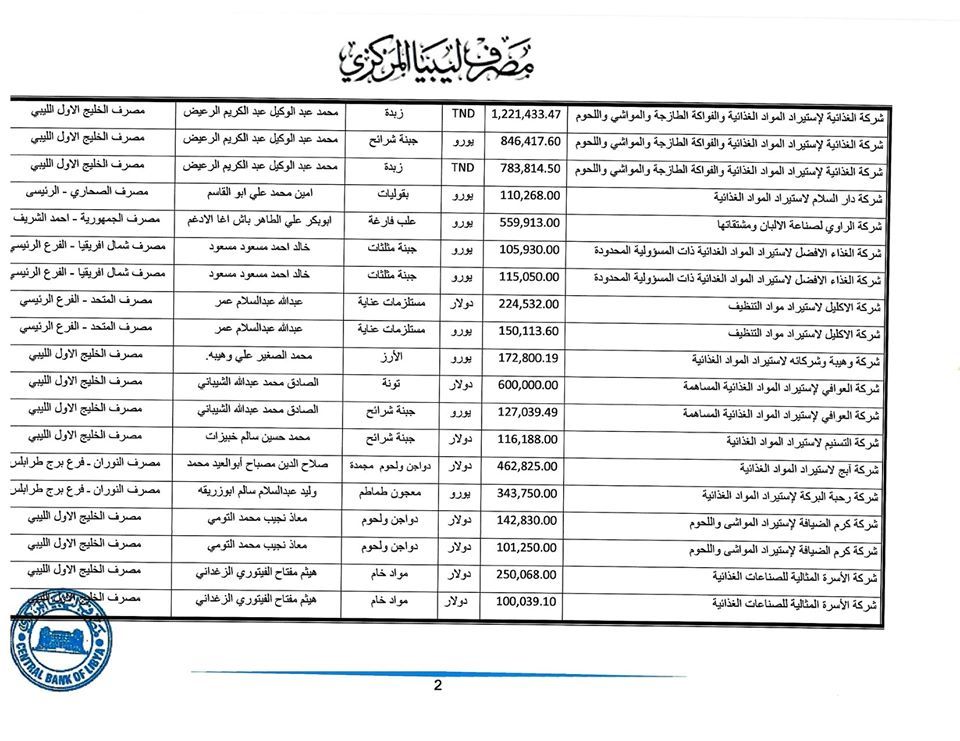 مصرف ليبيا المركزي
شركة الغذائية لإستيراد المواد الغذائية والفواكة الطازجة والمواشي واللحوم 1,221,433.47 TND زبدة محمد عبد الوكيل عبد الكريم الرعيض مصرف الخليج الاول الليبي
شركة الغذائية لإستيراد المواد الغذائية والفواكة الطازجة والمواشي واللحوم 846,417.60 يورو جبنة شرائح محمد عبد الوكيل عبد الكريم الرعيض مصرف الخليج الاول الليبي
شركة الغذائية لإستيراد المواد الغذائية والفواكة الطازجة والمواشي واللحوم 783,814.50 TND زبدة محمد عبد الوكيل عبد الكريم الرعيض مصرف الخليج الاول الليبي
شركة دار السلام لاستيراد المواد الغذائية 110,268.00 يورو بقوليات امين محمد علي ابو القاسم مصرف الصحاري - الرئيسى
شركة الراوي لصناعة الالبان ومشتقاتها 559,913.00 يورو علب فارغة ابوبكر علي الطاهر باش اغا الادغم مصرف الجمهورية - احمد الشريف
شركة الغذاء الافضل لاستيراد المواد الغدائية ذات المسؤولية المحدودة 105,930.00 يورو جبنة مثلثات خالد احمد مسعود مسعود مصرف شمال افريقيا - الفرع الرئيسي
شركة الغذاء الافضل لاستيراد المواد الغدائية ذات المسؤولية المحدودة 115,050.00 يورو جبنة مثلثات خالد احمد مسعود مسعود مصرف شمال افريقيا - الفرع الرئيسي
شركة الاكليل لاستيراد مواد التنظيف 224,532.00 دولار مستلزمات عناية عبدالله عبدالسلام عمر مصرف المتحد - الفرع الرئيسي
شركة الاكليل لاستيراد مواد التنظيف 150,113.60 يورو مستلزمات عناية عبدالله عبدالسلام عمر مصرف المتحد - الفرع الرئيسي
شركة وهيبة وشركائه لاستيراد المواد الغذائية 172,800.19 يورو الأرز محمد الصغير علي وهيبه. مصرف الخليج الاول الليبي
شركة العوافي لإستيراد المواد الغذائية المساهمة 600,000.00 دولار تونة الصادق محمد عبدالله الشيباني مصرف الخليج الاول الليبي
شركة العوافي لإستيراد المواد الغذائية المساهمة 127,039.49 يورو جبنة شرائح الصادق محمد عبدالله الشيباني مصرف الخليج الاول الليبي
شركة التسنيم لاستيراد المواد الغذائية 116,188.00 دولار جبنة شرائح محمد حسين سالم خبيزات مصرف الخليج الاول الليبي
شركة آبج لاستيراد المواد الغذائية 462,825.00 دولار دواجن ولحوم مجمدة صلاح الدين مصباح أبوالعيد محمد مصرف النوران - فرع برج طرابلس
شركة رحبة البركة لإستيراد المواد الغذائية 343,750.00 يورو معجون طماطم وليد عبدالسلام سالم ابوزريقه مصرف النوران - فرع برج طرابلس
شركة كرم الضيافة لإستيراد المواشى واللحوم 142,830.00 دولار دواجن ولحوم معاذ نجيب محمد التومي مصرف الخليج الاول الليبي
شركة كرم الضيافة لإستيراد المواشى واللحوم 101,250.00 دولار دواجن ولحوم معاذ نجيب محمد التومي مصرف الخليج الاول الليبي
شركة الأسرة المثالية للصناعات الغذائية 250,068.00 دولار مواد خام هيثم مفتاح الفيتوري الزغداني مصرف الخليج الاول الليبي
شركة الأسرة المثالية للصناعات الغذائية 100,039.10 دولار مواد خام هيثم مفتاح الفيتوري الزغداني مصرف الخليج الاول الليبي
CENTRAL BANK OF LIBYA
2